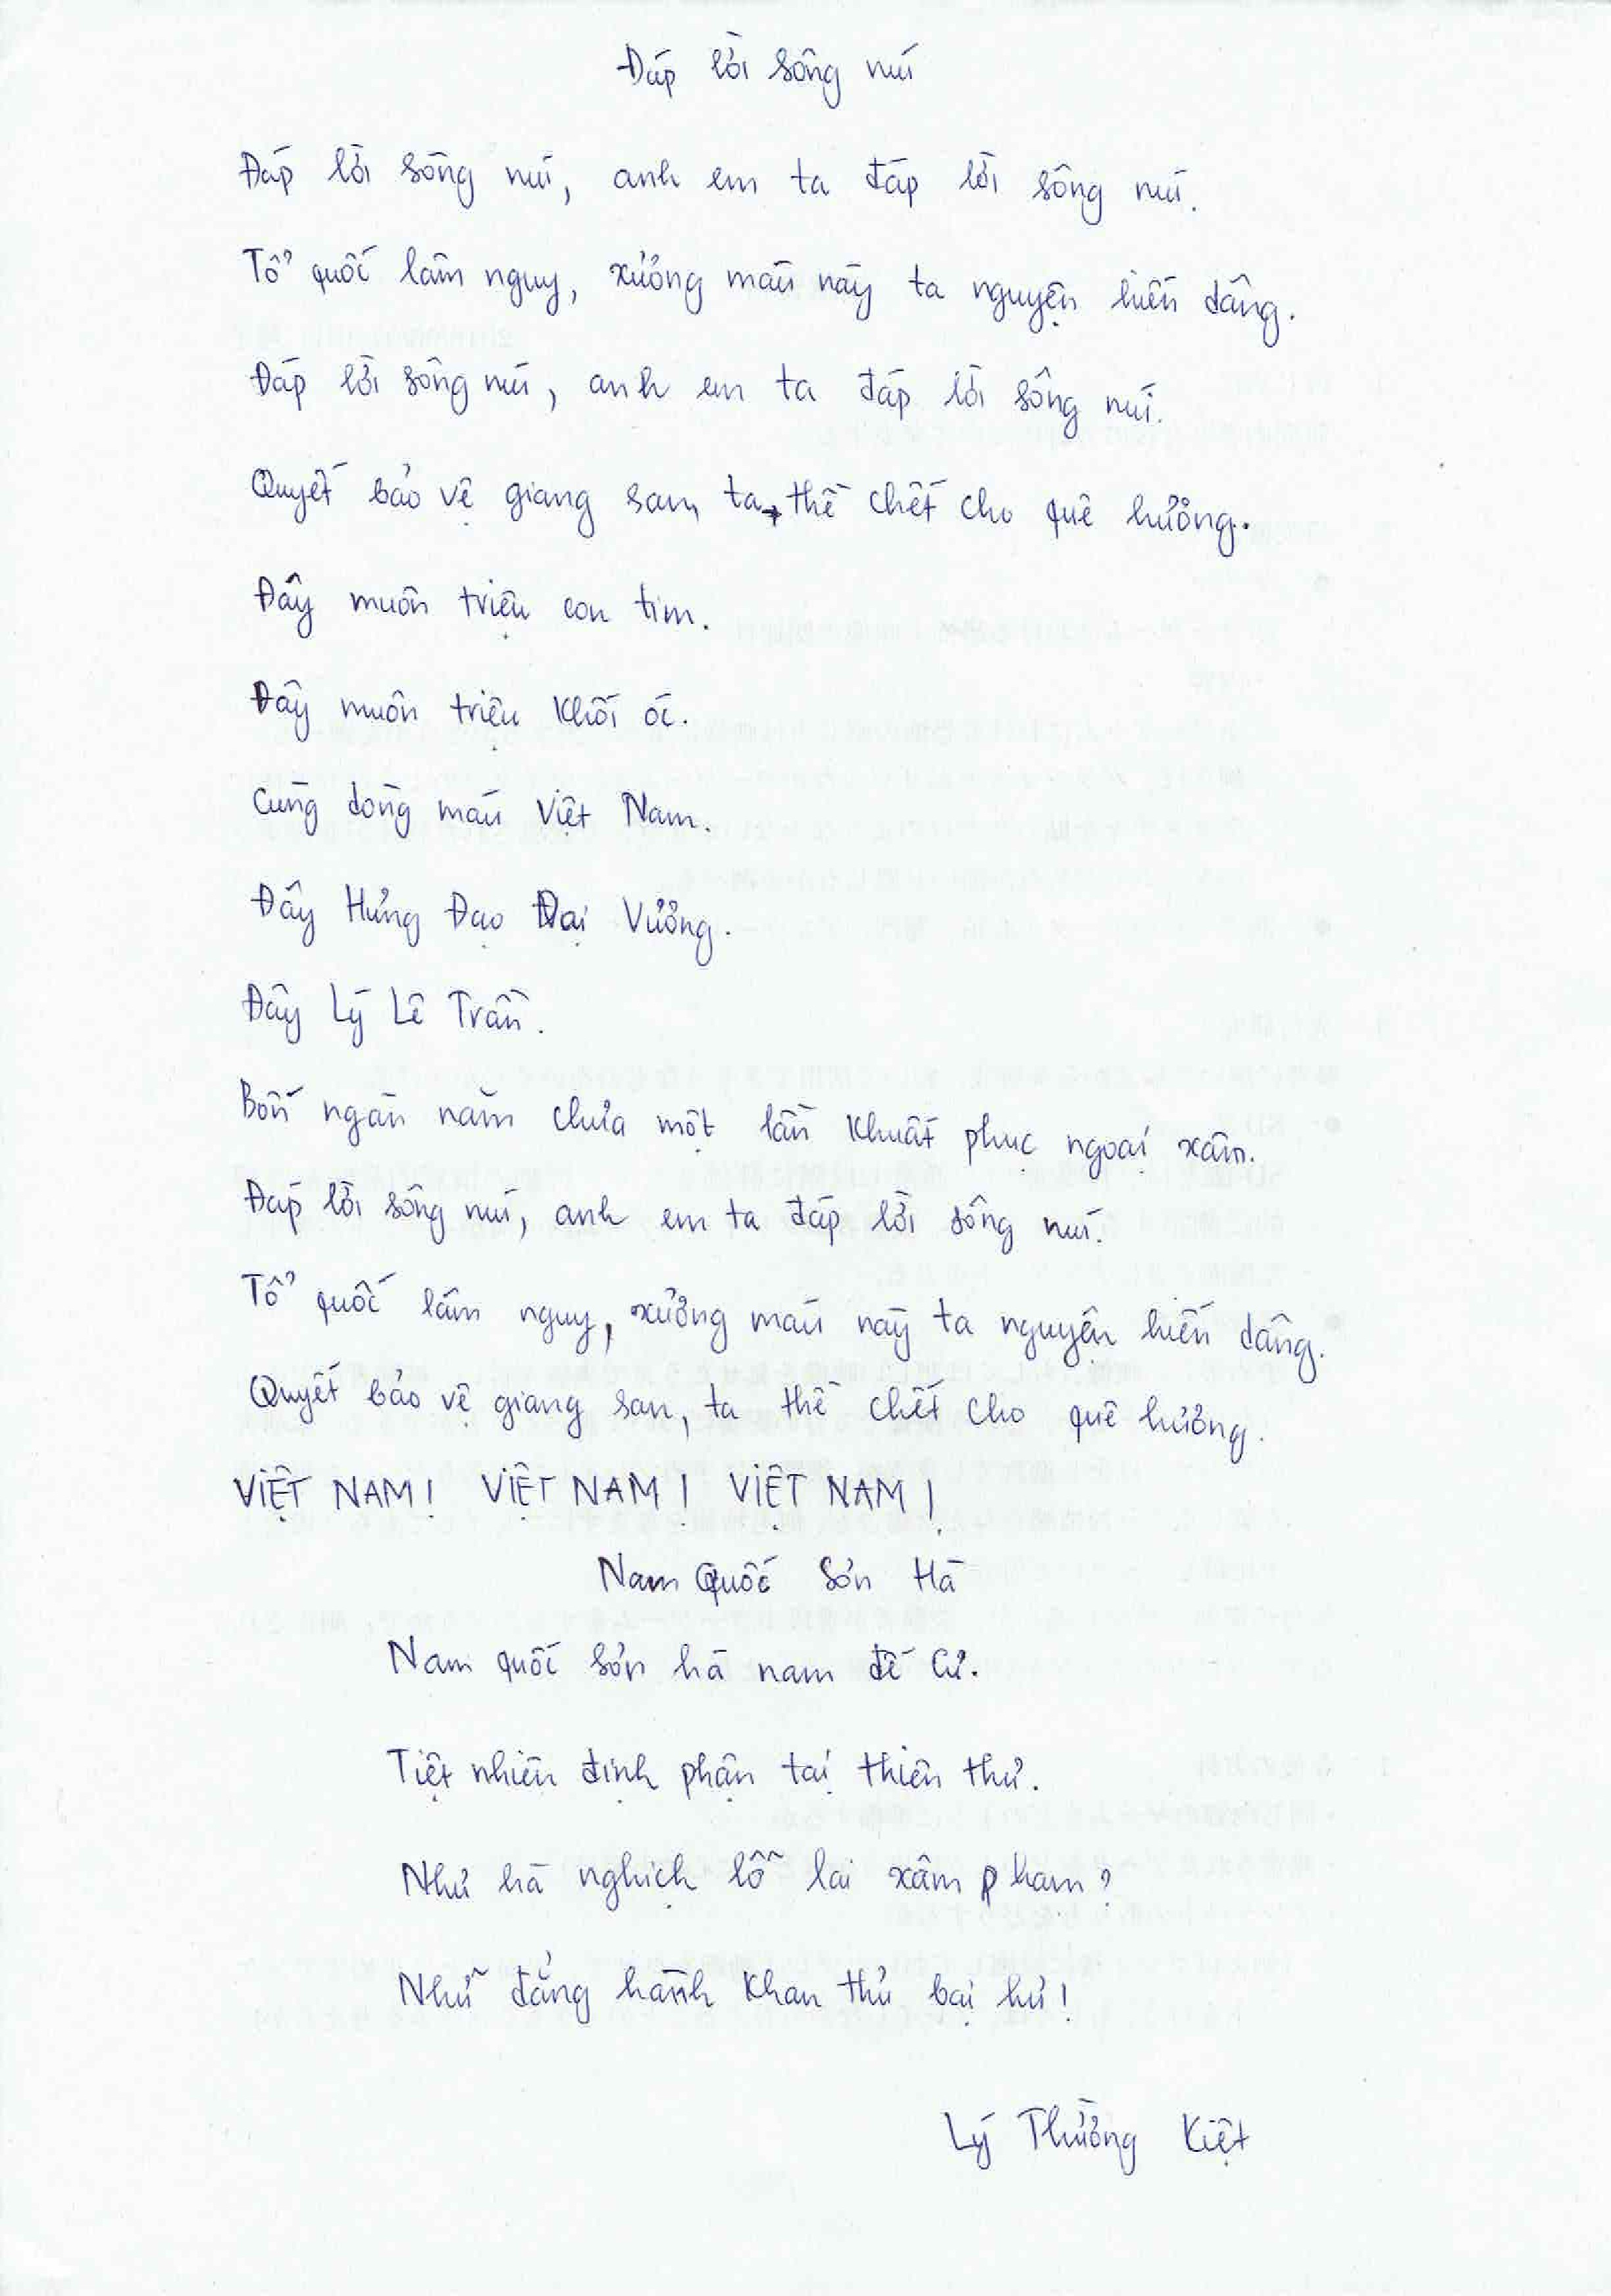 Đáp lời sông núi
Đáp lời sông núi, anh em ta đáp lời sông núi.
Tổ quốc lâm nguy, xương máu này ta nguyện hiến dâng.
Đáp lời sông núi, anh em ta đáp lời sông núi.
Quyết bảo vệ giang san, ta thề chết cho quê hương.
Đây muôn triệu con tim.
Đây muôn triệu khối óc.
Cùng dòng máu Việt Nam.
Đây Hưng Đạo Đại Vương.
Đây Lý Lê Trần.
Bốn ngàn năm chưa một lần khuất phục ngoại xâm.
Đáp lời sông núi, anh em ta đáp lời sông núi.
Tổ quốc lâm nguy, xương máu này ta nguyện hiến dâng.
Quyết bảo vệ giang san, ta thề chết cho quê hương.
VIỆT NAM! VIỆT NAM! VIỆT NAM!
Nam Quốc Sơn Hà
Nam quốc sơn hà nam đế cư.
Tiệt nhiên định phận tại thiên thư.
Như hà nghịch lỗ lai xâm phạm?
Nhữ đẳng hành khan thủ bại hư!
Lý Thường Kiệt